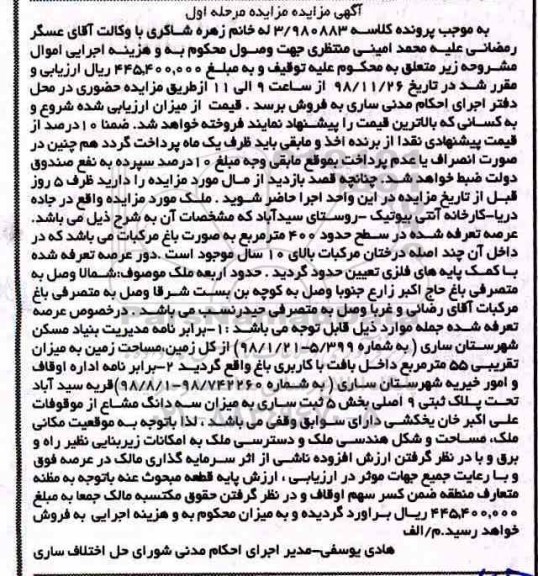 آگهی مزایده مزایده مرحله اول
به موجب پرونده کلاسه ۳/۹۸۰۸۸۳ له خانم زهره شاگری با وکالت آقای عسگر
رمضانی علیه محمد امینی منتظری جهت وصول محکوم به و هزینه اجرایی اموال
مشروحه زیر متعلق به محکوم علیه توقیف و به مبلغ ۴۴۵,۴۰۰,۰۰۰ ریال ارزیابی و
مقرر شد در تاریخ ۹۸/۱۱/۲۶ از ساعت ۹ الی ۱۱ ازطریق مزایده حضوری در محل
دفتر اجرای احکام مدنی ساری به فروش برسد . قیمت از میزان ارزیابی شده شروع و
به کسانی که بالاترین قیمت را پیشنهاد نمایند فروخته خواهد شد. ضمنا ۱۰درصد از
قیمت پیشنهادی نقدا از برنده اخذ و مابقی باید ظرف یک ماه پرداخت گردد هم چنین در
صورت انصراف یا عدم پرداخت بموقع مابقی وجه مبلغ ۱۰درصد سپرده به نفع صندوق
دولت ضبط خواهد شد . چنانچه قصد بازدید از مال مورد مزایده را دارید ظرف ۵ روز
قبل از تاریخ مزایده در این واحد اجرا حاضر شوید . ملک مورد مزایده واقع در جاده
دریا-کارخانه آنتی بیوتیک -روستای سیدآباد که مشخصات آن به شرح ذیل می باشد.
عرصه تعرفه شده در سطح حدود ۴۰۰ مترمربع به صورت باغ مرکبات می باشد که در
داخل آن چند اصله درختان مرکبات بالای ۱۰ سال موجود است .دور عرصه تعرفه شده
با کمک پایه های فلزی تعیین حدود گردید . حدود اربعه ملک موصوف:شمالا وصل به
متصرفی باغ حاج اکبر زارع جنوبا وصل به کوچه بن بست شرقا وصل به متصرفی باغ
مرکبات آقای رضائی و غربا وصل به متصرفی حیدرنسب می باشد . درخصوص عرصه
تعرفه شده جمله موارد ذیل قابل توجه می باشد :۱-برابر نامه مدیریت بنیاد مسکن
شهرستان ساری ( به شماره ۵/۳۹۹-۹۸/۱/۲۱) از کل زمین،مساحت زمین به میزان
تقریبی ۵۵ مترمربع داخل بافت با کاربری باغ واقع گردید ۲-برابر نامه اداره اوقاف
و امور خیریه شهرستان ساری ( به شماره ۹۸/۷۴۲۲۶۰-۹۸/۸/۱)قریه سید آباد
تحت پلاک ثبتی ۹ اصلی بخش ۵ ثبت ساری به میزان سه دانگ مشاع از موقوفات
علی اکبر خان یخکشی دارای سوابق وقفی می باشد . لذا باتوجه به موقعیت مکانی
ملک، مساحت و شکل هندسی ملک و دسترسی ملک به امکانات زیربنایی نظیر راه و
برق و با در نظر گرفتن ارزش افزوده ناشی از اثر سرمایه گذاری مالک در عرصه فوق
و با رعایت جمیع جهات موثر در ارزیابی ، ارزش پایه قطعه مبحوث عنه باتوجه به مظنه
متعارف منطقه ضمن کسر سهم اوقاف و در نظر گرفتن حقوق مکتسبه مالک جمعا به مبلغ
۴۴۵,۴۰۰,۰۰۰ ریال براورد گردیده و به میزان محکوم به و هزینه اجرایی به فروش
خواهد رسید.م/الف
هادی یوسفی-مدیر اجرای احکام مدنی شورای حل اختلاف ساری